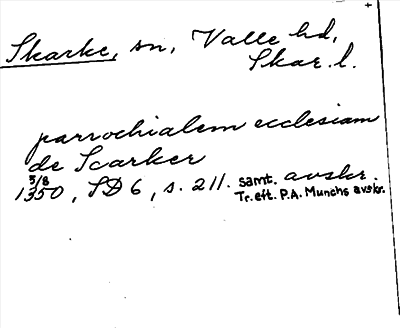 Skarke, sn, Valle hd,
Skar. l.
parrochialem ecclesiam
de Scarker
5/8
1350, SD 6, s. 211. samt. avskr.
Tr. eft. P.A. Munchs avskr.